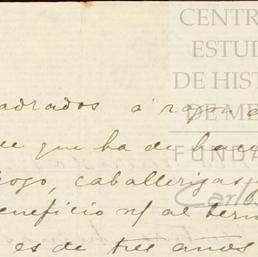 CENTR
ESTUD
DE HIST
DE ME
FUNDA
Carlos
adrados á razon
ue que ha de hace
logo, caballerizas
eneficio n/ al term
es de tres años